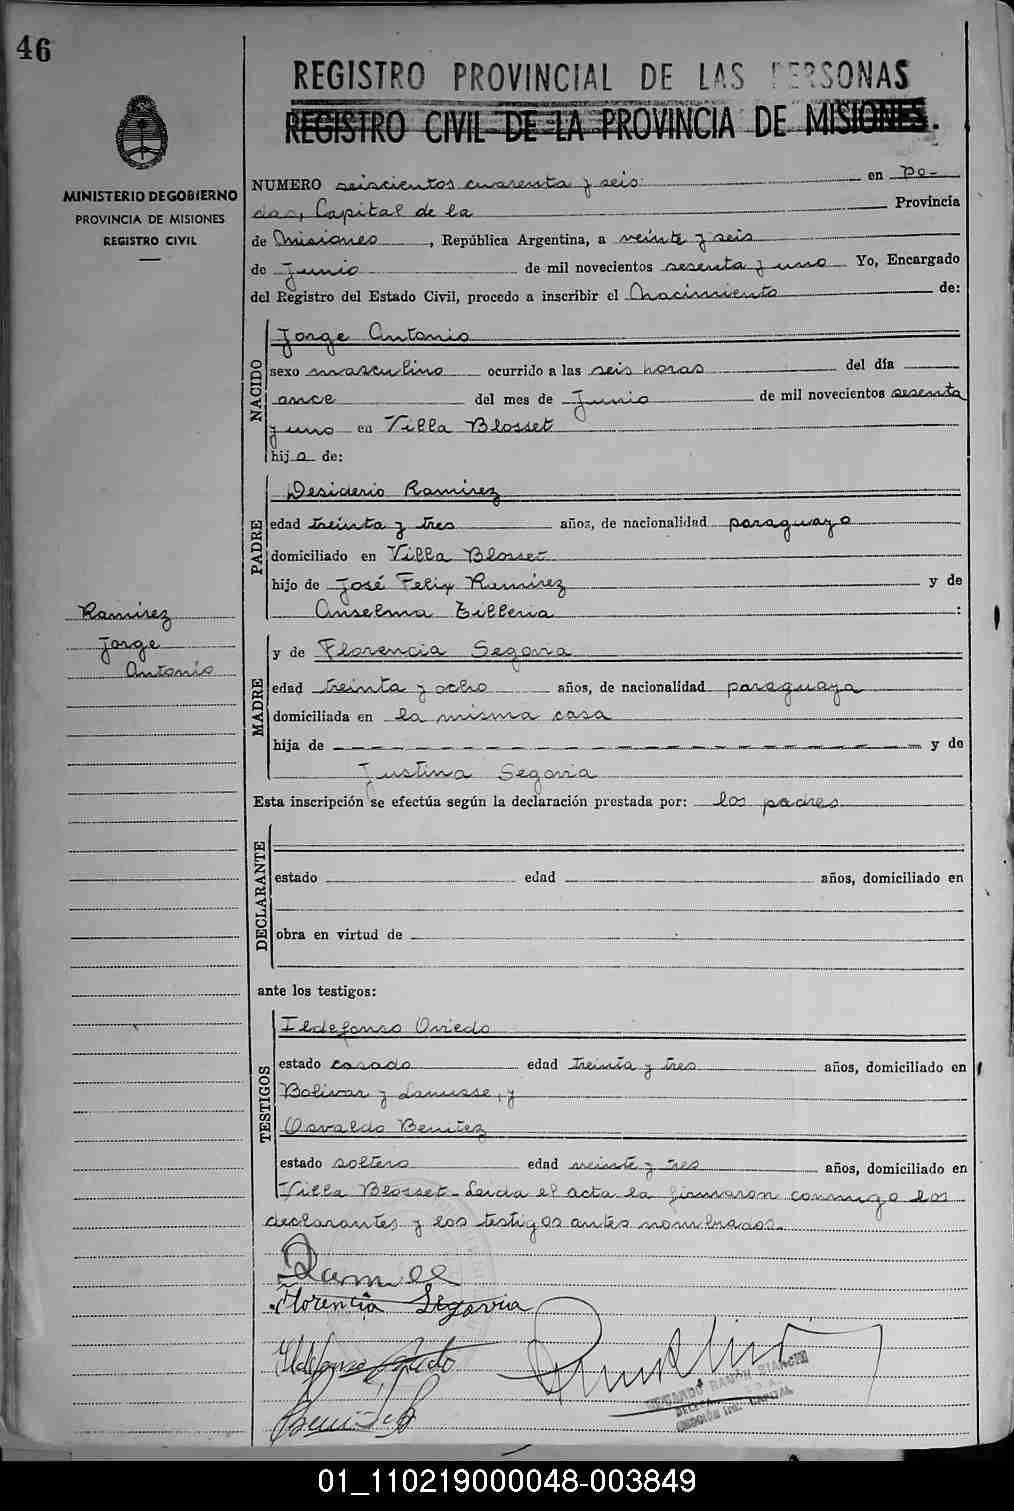 46
REGISTRO PROVINCIAL DE LAS PERSONAS
REGISTRO CIVIL DE LA PROVINCIA DE MISIONES.
MINISTERIO DE GOBIERNO
PROVINCIA DE MISIONES
REGISTRO CIVIL
NUMERO seiscientos cuarenta y seis en Po-
das, Capital de la Provincia
de Misiones, República Argentina, a veinte y seis
de Junio de mil novecientos sesenta y uno Yo, Encargado
del Registro del Estado Civil, procedo a inscribir el Nacimiento de:
NACIDO
Jorge Antonio
sexo masculino ocurrido a las seis horas del día
once del mes de Junio de mil novecientos sesenta
y uno en Villa Blosset
hijo de:
PADRE
Desiderio Ramirez
edad treinta y tres años, de nacionalidad paraguayo
domiciliado en Villa Blosset
hijo de José Felix Ramirez y de
Anselma Tilleria :
Ramirez
Jorge
Antonio
MADRE
y de Florencia Segovia
edad treinta y ocho años, de nacionalidad paraguaya
domiciliada en la misma casa
hija de — — — — — — — — — — — — — — — — y de
Justina Segovia
Esta inscripción se efectúa según la declaración prestada por: los padres
DECLARANTE
estado edad años, domiciliado en
obra en virtud de
ante los testigos:
TESTIGOS
Ildefonso Oviedo
estado casado edad treinta y tres años, domiciliado en
Bolivar y Lanusse, y
Osvaldo Benitez
estado soltero edad veinte y tres años, domiciliado en
Villa Blosset. Leida el acta la firmaron conmigo los
declarantes y los testigos antes nombrados.
Florencia Segovia
Ildefonso Oviedo
RAMON BIANCHI
CAPITAL
01_110219000048-003849